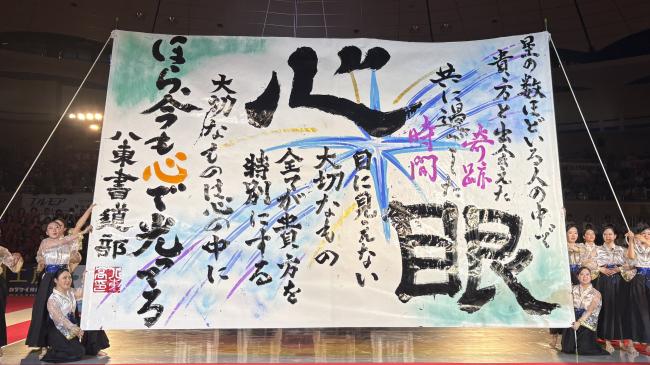 星の数ほどいる人の中で
貴方と出会えた
奇跡
共に過ごした
時間
心眼
目に見えない
大切なもの
全てが貴方を
特別にする
大切なものは心の中に
ほら今も心で光ってる
八東書道部